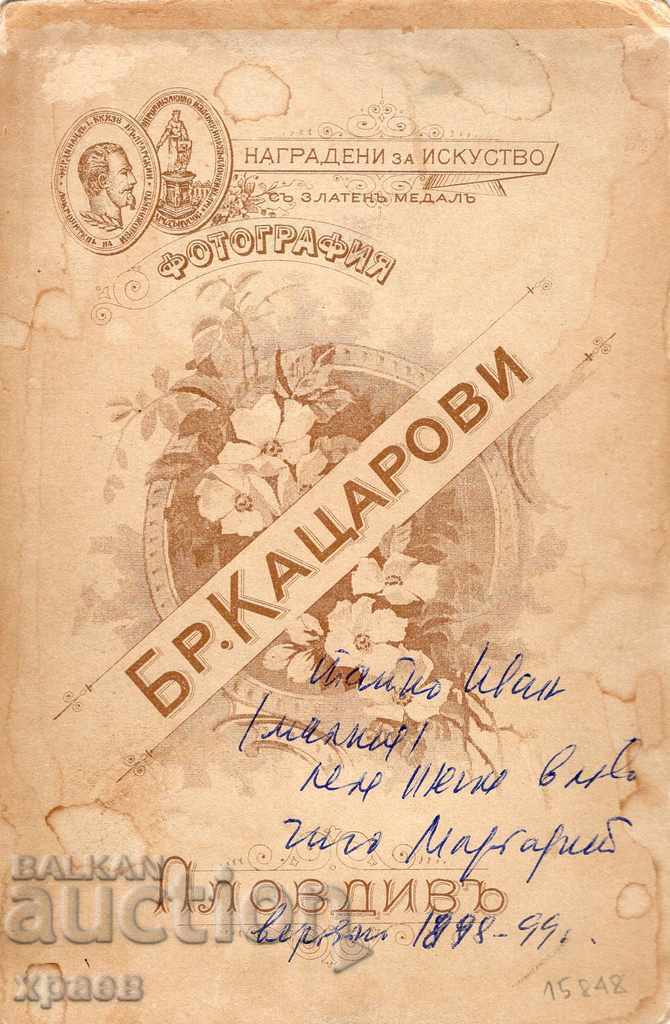 НАГРАДЕНИ ЗА ИСКУСТВО
СЪ ЗЛАТЕНЪ МЕДАЛЪ
ФОТОГРАФИЯ
БР. КАЦАРОВИ
татко Иван
(малкия)
леля в ляво
чичо Маргарит
ПЛОВДИВЪ
вероятно 1898-99 г.
15848
BALKAN
auction
храов